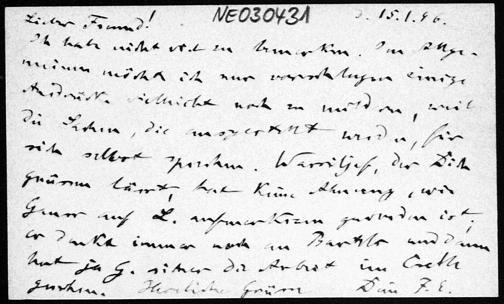 NE030431
Lieber Freund! d. 15.1.96.
Ich habe nicht viel zu bemerken. Im Allge-
meinen möcht ich nur vorschlagen einige
Ausdrücke vielleicht noch zu mildern, weil
die Sachen, die ausgestellt werden, für
sich selbst sprechen. Wassiljef, der Dich
grüssen lässt, hat keine Ahnung, wie
Gauss auf L. aufmerksam geworden ist;
er denkt immer noch an Bartels und dann
hat ja G. sicher die Arbeit im Crelle
gesehen. Herzliche Grüsse Dein F. E.